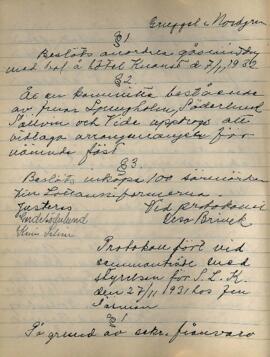 Gruppel i Nordgren
§ 1
Beslöts anordna gåsmiddag
med bal å hotel Knaust d. 7/1, 1932
§ 2.
Åt en kommitté bestående
av fruar Ljungholm, Söderlund
Sellin och Vide uppdrogs att
vidtaga arrangemangen för
nämnde fest.
§ 3.
Beslöts inköpa 100
till Lottauniformerna.
Justeras
Vid protokollet
Gerda Söderlund
Vera Brinck
Protokoll fört vid
sammanträde med
styrelsen för S. L. K.
den 27/11 1931 hos fru
§ 1
På grund av sekr. frånvaro